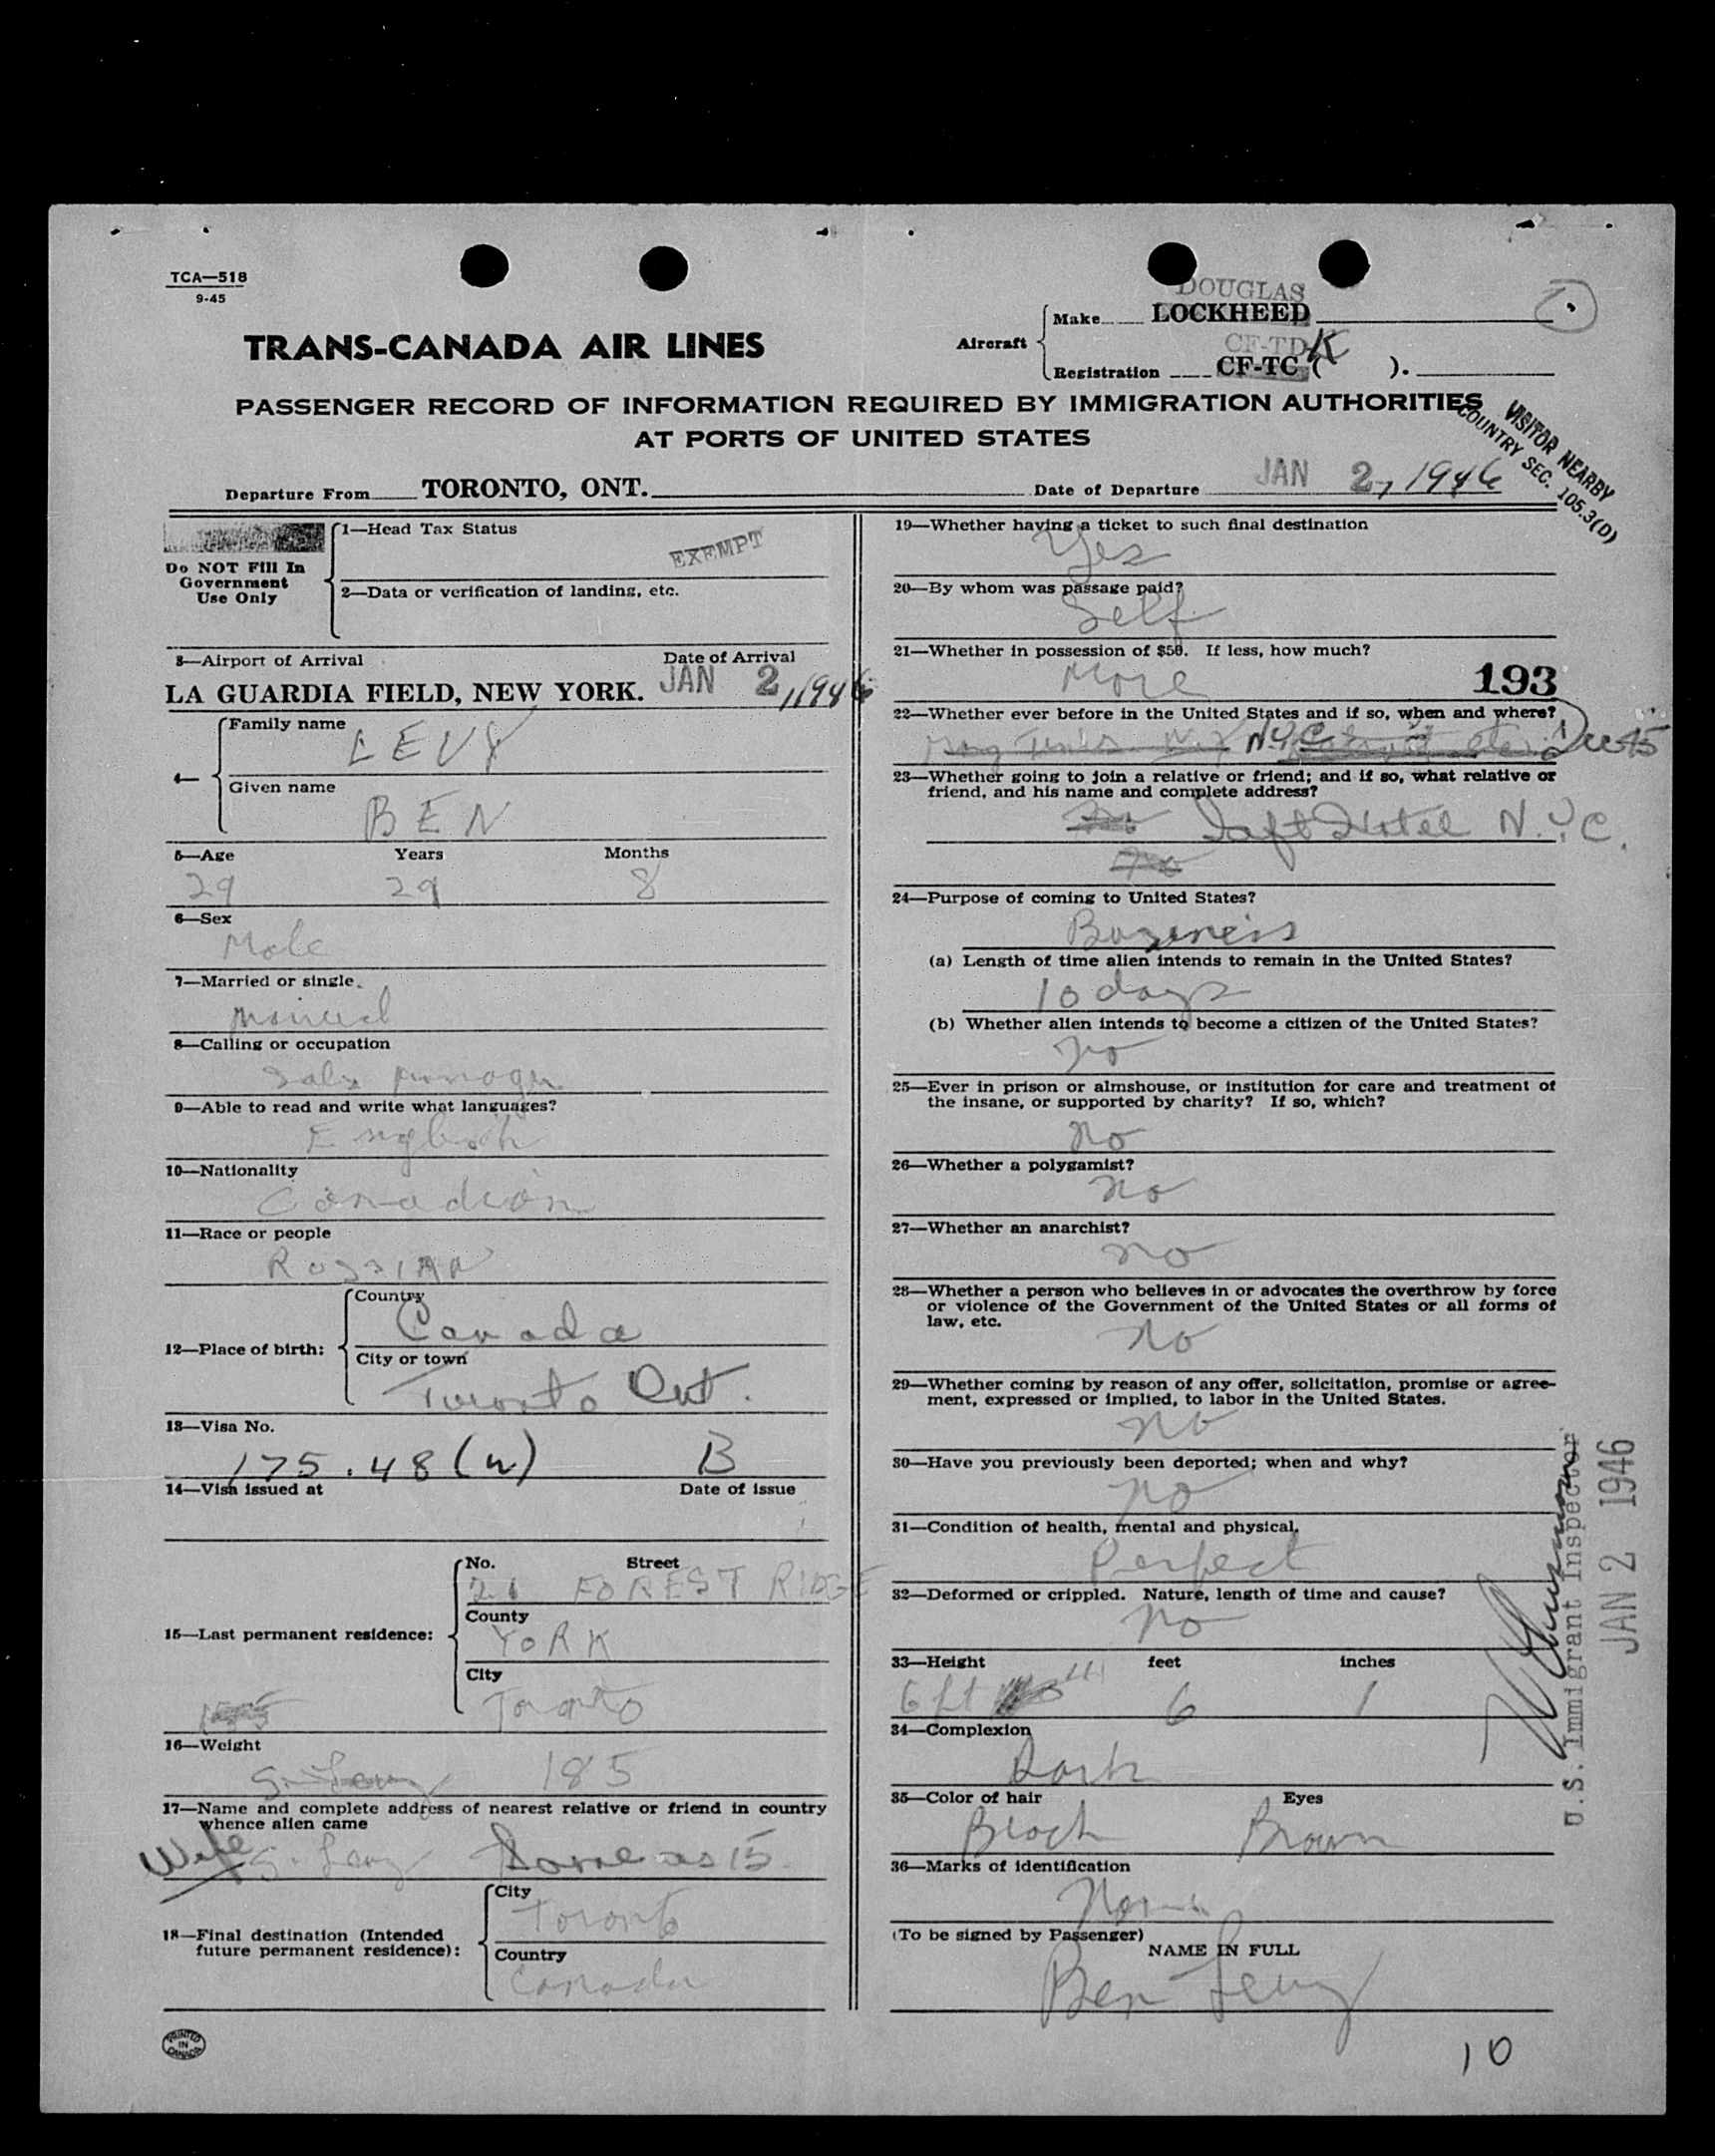 TCA—518
9-45
TRANS-CANADA AIR LINES
Aircraft
DOUGLAS
Make LOCKHEED
CF-TD K
Registration CF-TC ( ).
PASSENGER RECORD OF INFORMATION REQUIRED BY IMMIGRATION AUTHORITIES
AT PORTS OF UNITED STATES
VISITOR NEARBY
COUNTRY SEC. 105.3(D)
Departure From TORONTO, ONT.
Date of Departure JAN 2, 1946
Do NOT Fill In
Government
Use Only
1—Head Tax Status
EXEMPT
2—Data or verification of landing, etc.
3—Airport of Arrival Date of Arrival
LA GUARDIA FIELD, NEW YORK. JAN 2, 1946
4—
Family name
LEVY
Given name
BEN
5—Age Years Months
29 29 8
6—Sex
Male
7—Married or single.
Married
8—Calling or occupation
9—Able to read and write what languages?
English
10—Nationality
Canadian
11—Race or people
RUSSIAN
12—Place of birth:
Country
Canada
City or town
Toronto Ont.
13—Visa No.
175.48 (w) B
14—Visa issued at Date of issue
15—Last permanent residence:
No. Street
21 FOREST RIDGE
County
YORK
City
Toronto
16—Weight
S. Levy 185
17—Name and complete address of nearest relative or friend in country
whence alien came
Wife S. Levy Same as 15
18—Final destination (Intended
future permanent residence):
City
Toronto
Country
Canada
PRINTED
IN
CANADA
19—Whether having a ticket to such final destination
Yes
20—By whom was passage paid?
Self
21—Whether in possession of $50. If less, how much?
More
193
22—Whether ever before in the United States and if so, when and where?
Many Times N.Y. N.Y.C. Dec 45
23—Whether going to join a relative or friend; and if so, what relative or
friend, and his name and complete address?
Taft Hotel N.Y.C.
No
24—Purpose of coming to United States?
Buseness
(a) Length of time alien intends to remain in the United States?
10 days
(b) Whether alien intends to become a citizen of the United States?
No
25—Ever in prison or almshouse, or institution for care and treatment of
the insane, or supported by charity? If so, which?
No
26—Whether a polygamist?
No
27—Whether an anarchist?
no
28—Whether a person who believes in or advocates the overthrow by force
or violence of the Government of the United States or all forms of
law, etc.
No
29—Whether coming by reason of any offer, solicitation, promise or agree-
ment, expressed or implied, to labor in the United States.
No
30—Have you previously been deported; when and why?
No
31—Condition of health, mental and physical.
Perfect
32—Deformed or crippled. Nature, length of time and cause?
No
33—Height feet inches
6 ft 6 1
34—Complexion
Dark
35—Color of hair Eyes
Black Brown
36—Marks of identification
None
(To be signed by Passenger)
NAME IN FULL
Ben Levy
10
U.S. Immigrant Inspector
JAN 2 1946